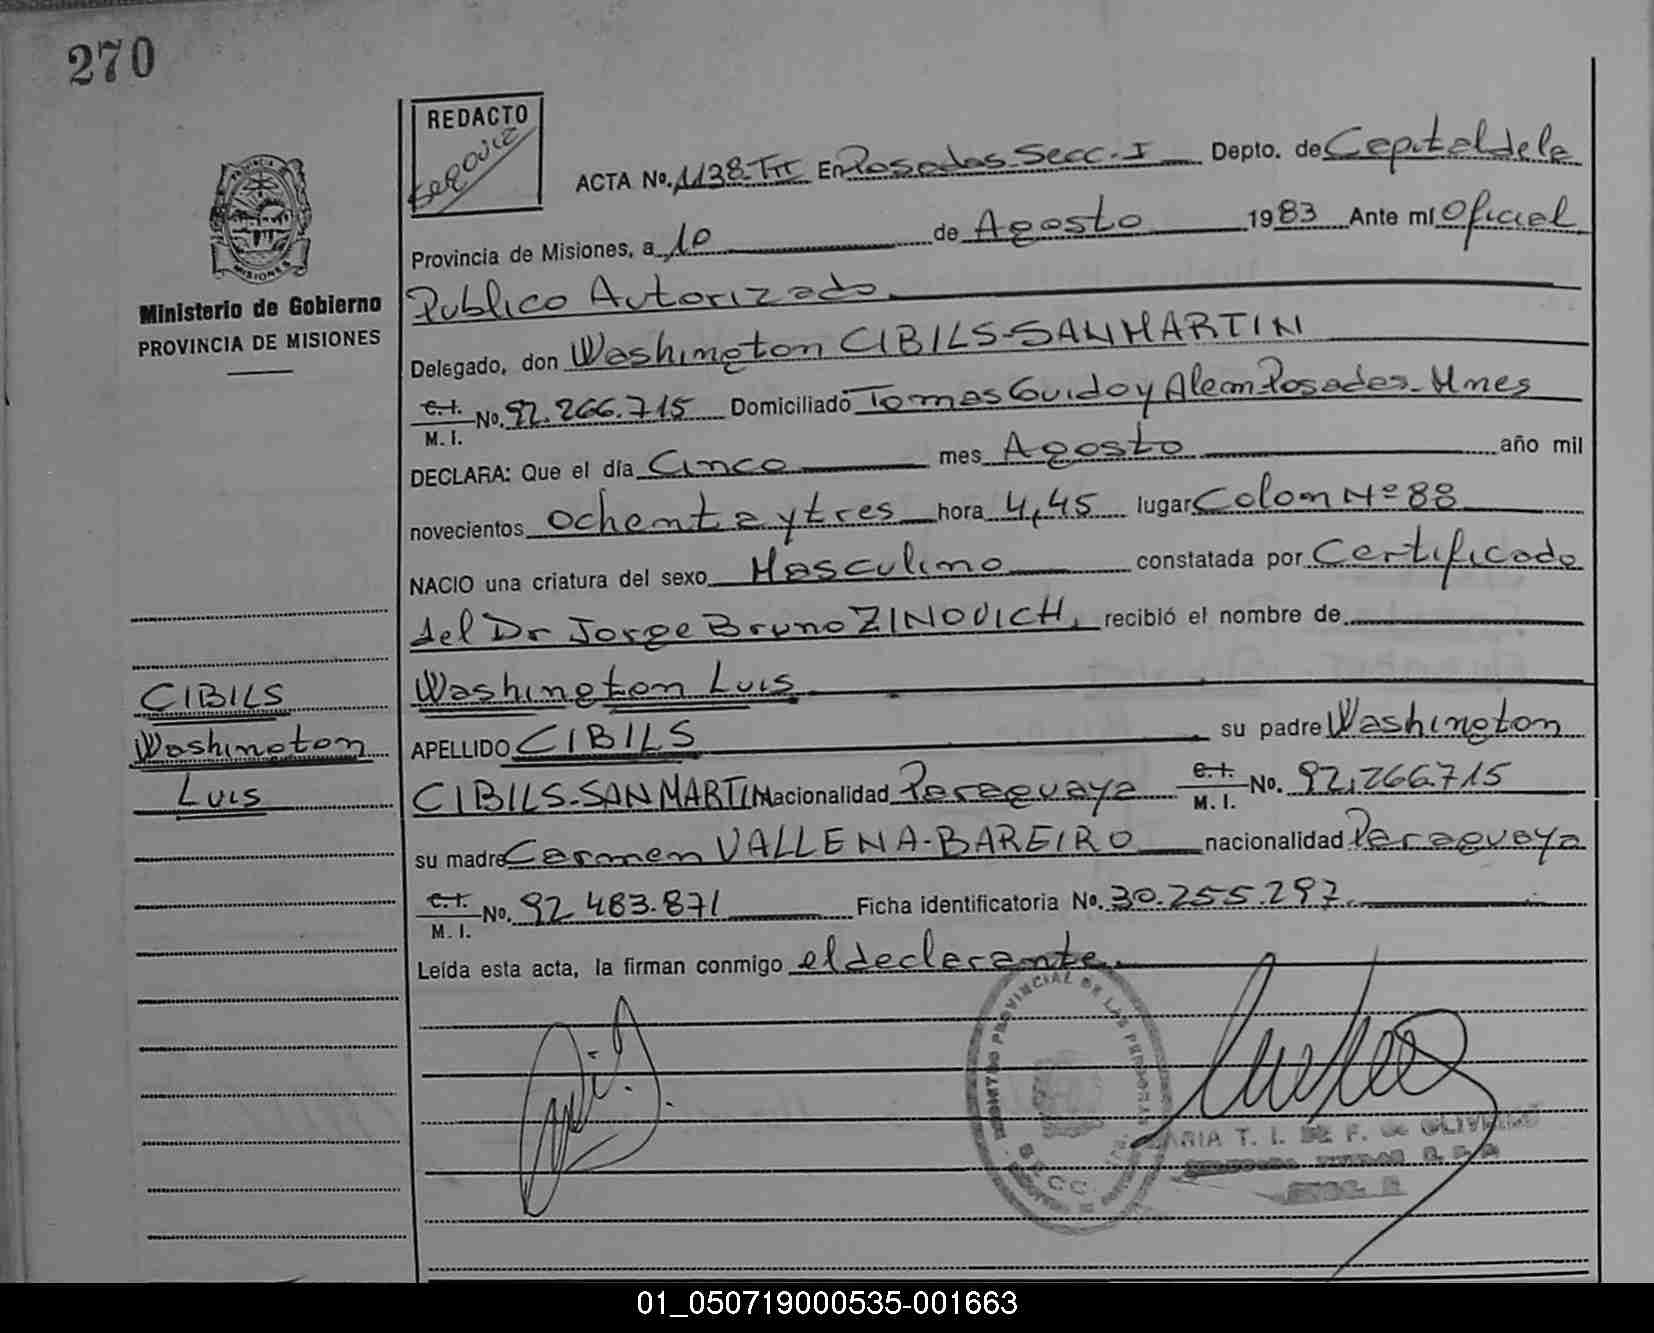 270
REDACTO
PROVINCIA
MISIONES
Ministerio de Gobierno
PROVINCIA DE MISIONES
ACTA No. 1138-TII En Posadas Secc. I Depto. de Capital de la
Provincia de Misiones, a 10 de Agosto 1983 Ante mi Oficial
Publico Autorizado
Delegado, don Washington CIBILS-SANMARTIN
C.I. M. I. No. 92.266.715 Domiciliado Tomas Guido y Alem-Posadas-Mnes
DECLARA: Que el día Cinco mes Agosto año mil
novecientos ochenta y tres hora 4,45 lugar Colon Nº 88
NACIO una criatura del sexo Masculino constatada por Certificado
del Dr Jorge Bruno ZINOVICH, recibió el nombre de
Washington Luis
APELLIDO CIBILS su padre Washington
CIBILS-SANMARTIN Nacionalidad Paraguaya C.I. M. I. No. 92.266.715
su madre Carmen VALLENA-BAREIRO nacionalidad Paraguaya
C.I. M. I. No. 92.483.871 Ficha identificatoria No. 30.255.297
Leída esta acta, la firman conmigo el declarante.
CIBILS
Washington
Luis
PROVINCIAL DE LAS PERSONAS
MARIA T. I. DE F. de OLIVEIRO
01_050719000535-001663